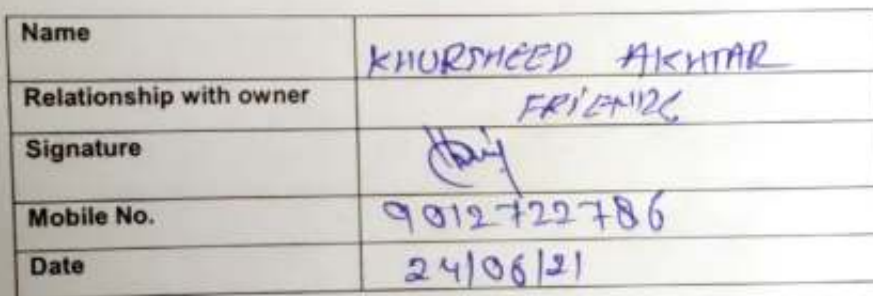 Name KHURSHEED AKHTAR
Relationship with owner FRIENDS
Signature
Mobile No. 9012722786
Date 24/06/21